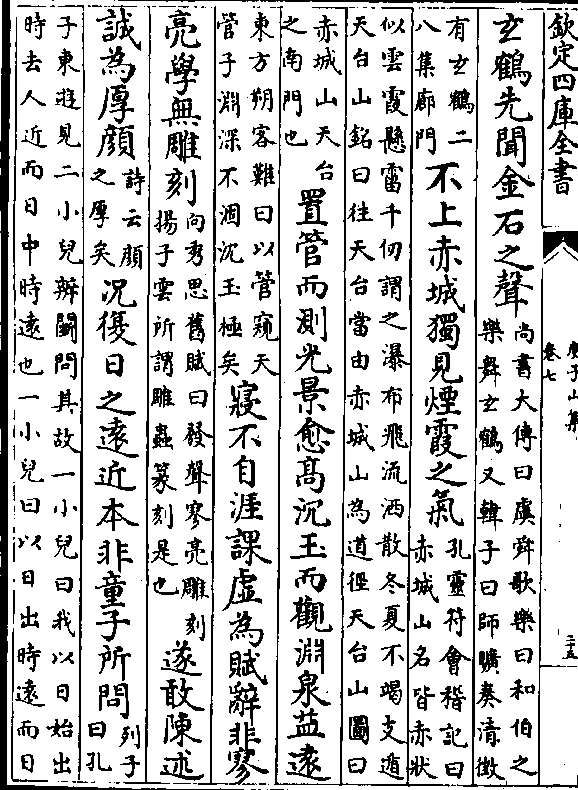 欽定四庫全書
庾子山集
卷七
二十五
玄鶴先聞金石之聲尚書大傳曰虞舜歌樂曰和伯之
樂舞玄鶴又韓子曰師曠奏清徵
有玄鶴二
八集廊門不上赤城獨見煙霞之氣孔靈符會稽記曰
赤城山名皆赤狀
似雲霞懸霤千仞謂之瀑布飛流洒散冬夏不竭支遁
天台山銘曰往天台當由赤城山為道徑天台山圖曰
赤城山天台
之南門也置管而測光景愈高沉玉而觀淵泉益遠
東方朔客難曰以管窺天
管子淵深不涸沉玉極矣寢不自涯課虛為賦辭非寥
亮學無雕刻向秀思舊賦曰發聲寥亮雕刻
揚子雲所謂雕蟲篆刻是也遂敢陳述
誠為厚顔詩云顔
之厚矣况復日之遠近本非童子所問列子
曰孔
子東遊見二小兒辨鬭問其故一小兒曰我以日始出
時去人近而日中時遠也一小兒曰以日出時遠而日